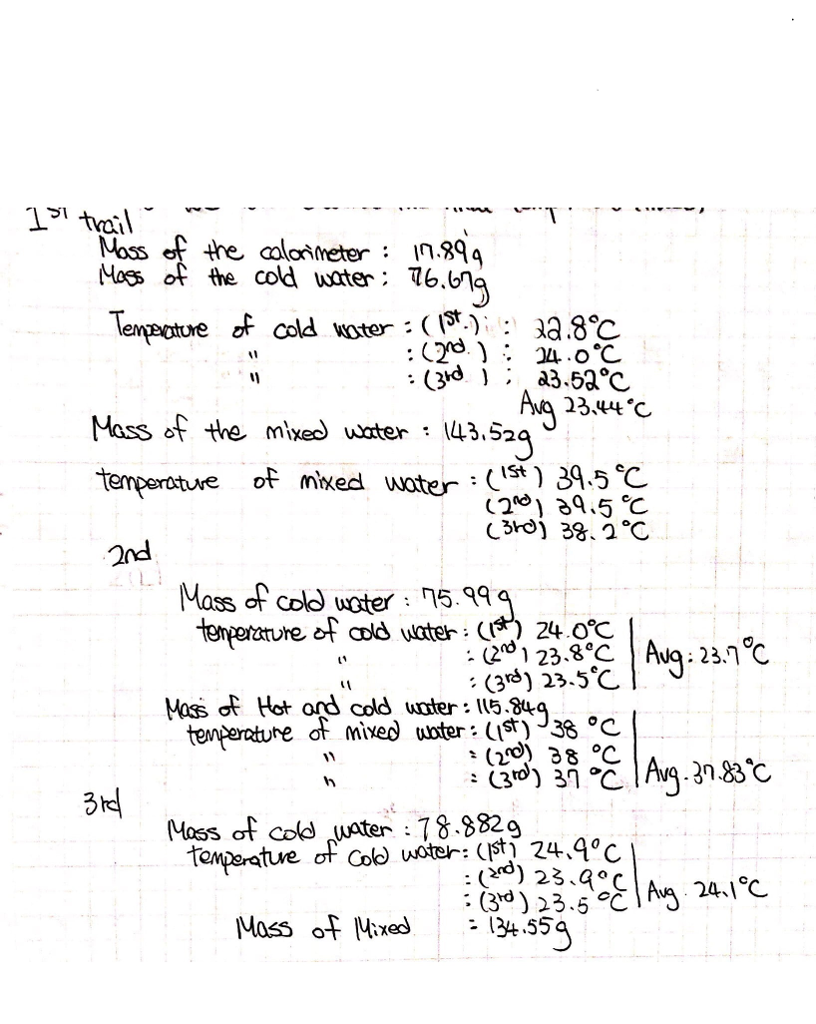 1st trail
Mass of the calorimeter : 17.89g
Mass of the cold water : 76.67g
Temperature of cold water : (1st.) : 22.8°C
" : (2nd.) : 24.0°C
" : (3rd ) : 23.52°C
Avg 23.44°C
Mass of the mixed water : 143.52g
temperature of mixed water : (1st) 39.5°C
(2nd) 39.5°C
(3rd) 38.2°C
2nd
Mass of cold water : 75.99g
temperature of cold water : (1st) 24.0°C
" : (2nd) 23.8°C Avg : 23.7°C
" : (3rd) 23.5°C
Mass of Hot and cold water : 115.84g
temperature of mixed water : (1st) 38 °C
" : (2nd) 38 °C
" : (3rd) 37 °C Avg. 37.83°C
3rd
Mass of cold water : 78.882g
temperature of cold water : (1st) 24.9°C
: (2nd) 23.9°C
: (3rd) 23.5°C Avg. 24.1°C
Mass of Mixed = 134.55g